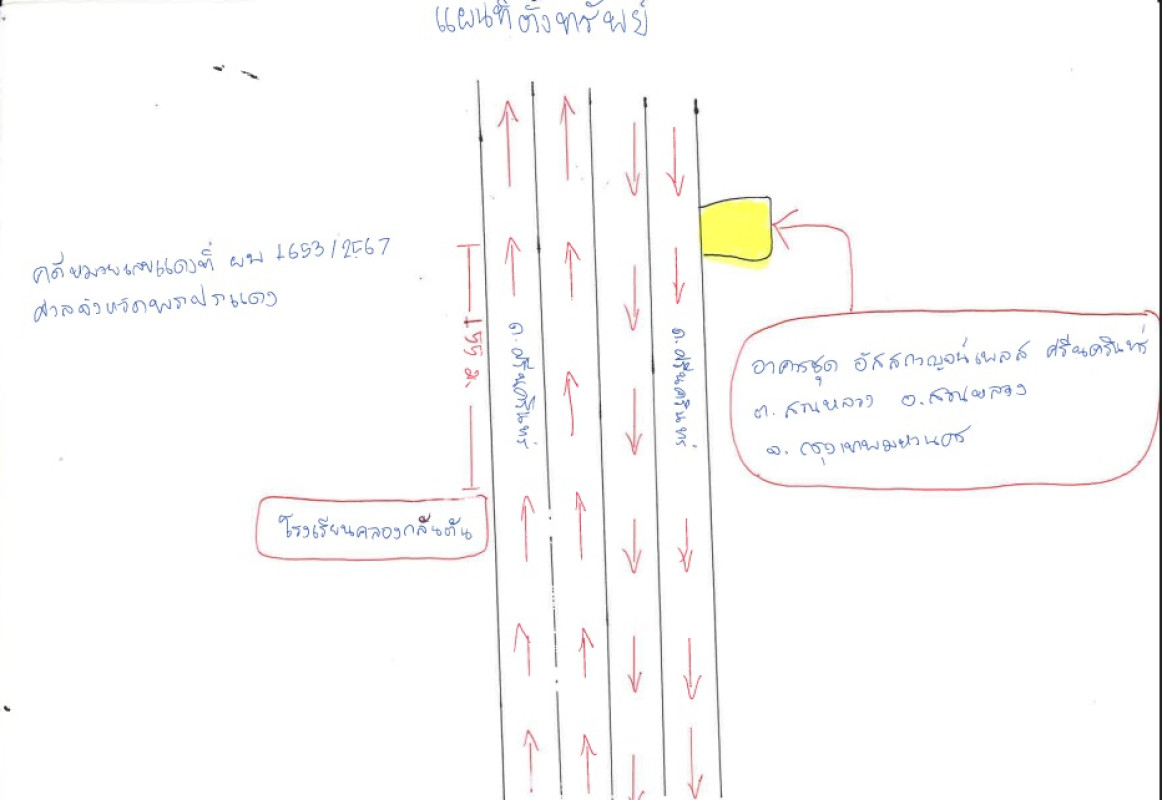 แผนที่ตั้งทรัพย์
คดีหมายเลขแดงที่ ผบ 1653/2567
ศาลจังหวัดพระประแดง
ถ.ศรีนครินทร์
ถ.ศรีนครินทร์
155 ม.
อาคารชุด อัสสกาญจน์เพลส ศรีนครินทร์
ต. สวนหลวง อ.สวนหลวง
จ. กรุงเทพมหานคร
โรงเรียนคลองกลันตัน